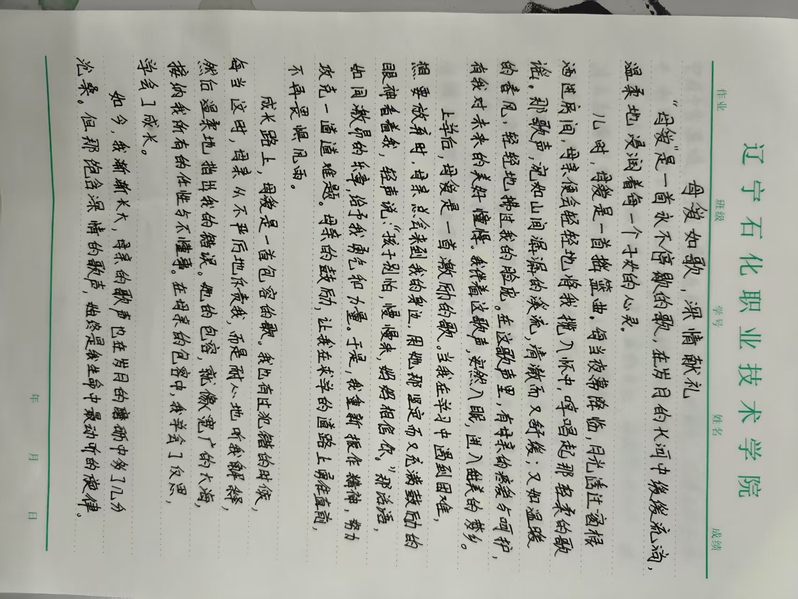 辽宁石化职业技术学院
作业 班级 学号 姓名 成绩
母爱如歌，深情献礼
“母爱”是一首永不停歇的歌，在岁月的长河中缓缓流淌，
温柔地浸润着每一个子女的心灵。
儿时，母爱是一首摇篮曲。每当夜幕降临，月光透过窗棂
洒进房间，母亲便会轻轻地将我揽入怀中，哼唱起那轻柔的歌
谣。那歌声，宛如山间潺潺的溪流，清澈而又舒缓；又如温暖
的春风，轻轻地拂过我的脸庞。在这歌声里，有母亲的疼爱与呵护，
有我对未来的美好憧憬。我伴着这歌声，安然入眠，进入甜美的梦乡。
上学后，母爱是一首激励的歌。当我在学习中遇到困难，
想要放弃时，母亲总会来到我的身边，用她那坚定而又充满鼓励的
眼神看着我，轻声说：“孩子别怕，慢慢来，妈妈相信你。”那话语，
如同激昂的乐章，给予我勇气和力量。于是，我重新振作精神，努力
攻克一道道难题。母亲的鼓励，让我在求学的道路上勇往直前，
不再畏惧风雨。
成长路上，母爱是一首包容的歌。我也有过犯错的时候，
每当这时，母亲从不严厉地斥责我，而是耐心地听我解释，
然后温柔地指出我的错误。她的包容，就像宽广的大海，
接纳我所有的任性与不懂事。在母亲的包容中，我学会了反思，
学会了成长。
如今，我渐渐长大，母亲的歌声也在岁月的磨砺中多了几分
沧桑。但那饱含深情的歌声，始终是我生命中最动听的旋律。
年 月 日